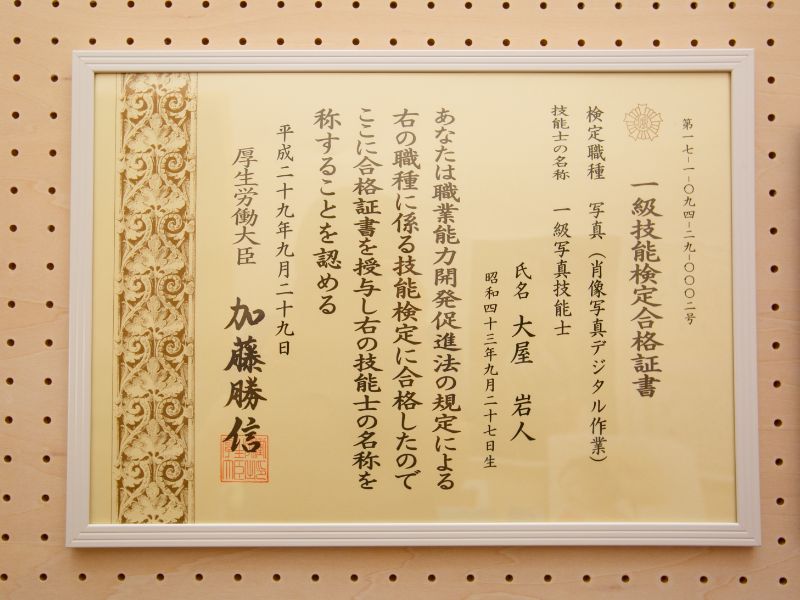 第一七－一－〇九四－二九－〇〇〇二号
一級技能検定合格証書
検定職種　写真（肖像写真デジタル作業）
技能士の名称　一級写真技能士
氏名　大屋　岩人
昭和四十三年九月二十七日生
あなたは職業能力開発促進法の規定による
右の職種に係る技能検定に合格したので
ここに合格証書を授与し右の技能士の名称を
称することを認める
平成二十九年九月二十九日
厚生労働大臣　加藤勝信